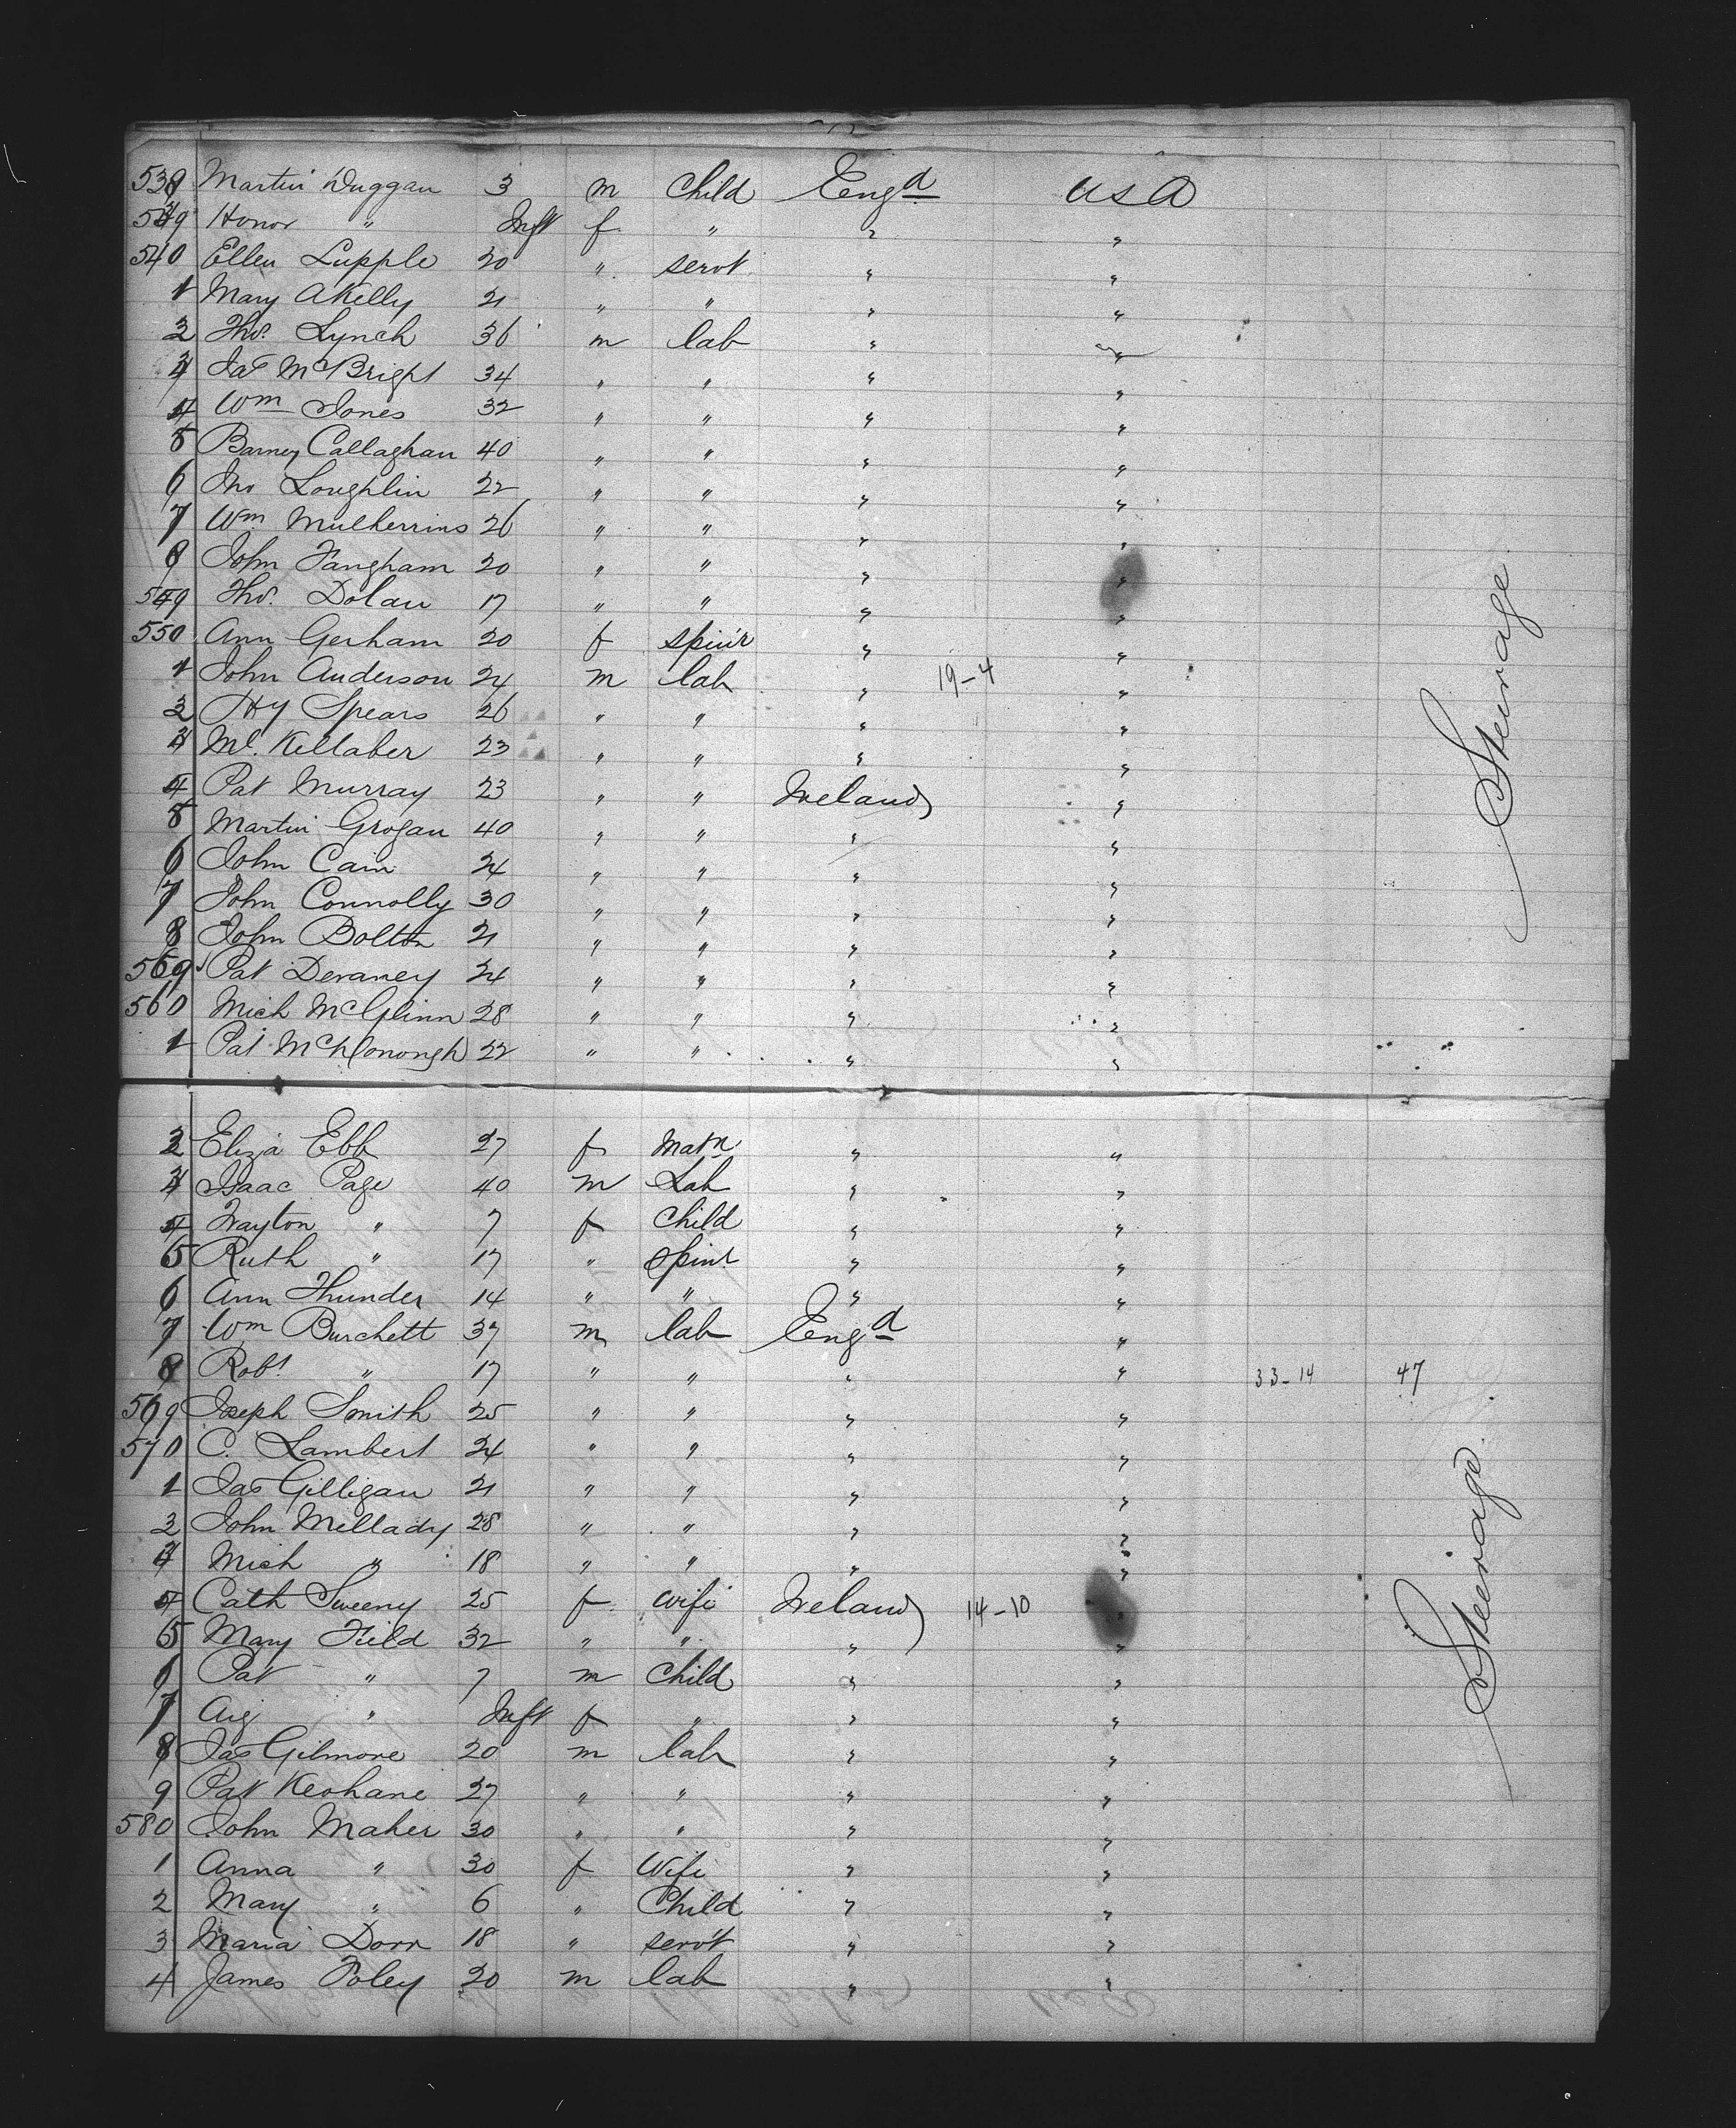 538 Martin Duggan 3 m Child Engd USA
539 Honor " Inft f " " "
540 Ellen Lupple 20 " servt " "
1 Mary A Kelly 21 " " " "
2 Thos. Lynch 36 m lab " "
3 Jas McBright 34 " " " "
4 Wm Jones 32 " " " "
5 Barney Callaghan 40 " " " "
6 Jno Loughlin 22 " " " "
7 Wm Mulherrins 26 " " " "
8 John Fangham 20 " " " "
549 Thos. Dolan 17 " " " "
550 Ann Gerham 20 f spinr " "
1 John Anderson 24 m lab " 19-4 "
2 Hy Spears 26 " " " "
3 Ml. Kellaher 23 " " " "
4 Pat Murray 23 " " Ireland "
5 Martin Grogan 40 " " " "
6 John Cain 24 " " " "
7 John Connolly 30 " " " "
8 John Bolton 21 " " " "
559 Pat Devaney 24 " " " "
560 Mich McGlinn 28 " " " "
1 Pat McDonough 22 " " " "
Steerage
2 Eliza Ebb 27 f Matn " "
3 Isaac Page 40 m Lab " "
4 " 7 f Child " "
5 Ruth " 17 " Spinr " "
6 Ann Thunder 14 " " " "
7 Wm Burchett 37 m lab Engd "
8 Robt " 17 " " " " 33-14 47
569 Joseph Smith 25 " " " "
570 C. Lambert 24 " " " "
1 Jas Gilligan 21 " " " "
2 John Mellady 28 " " " "
3 Mich " 18 " " " "
4 Cath Sweeny 25 f wife Ireland 14-10 "
5 Mary Field 32 " " " "
6 Pat " 7 m Child " "
7 " Inft f " " "
8 Jas Gilmore 20 m lab " "
9 Pat Keohane 27 " " " "
580 John Maher 30 " " " "
1 Anna " 30 f Wife " "
2 Mary " 6 " Child " "
3 Maria Dorr 18 " servt " "
4 James Foley 20 m lab " "
Steerage